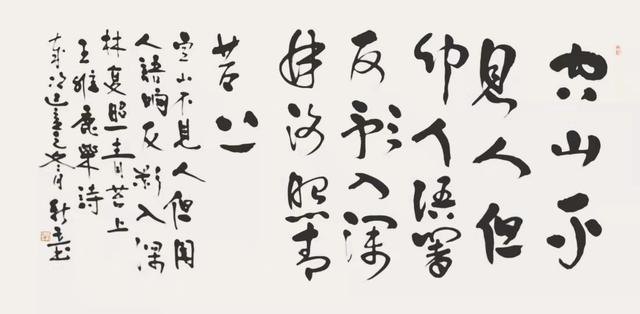 空山不
見人但
聞人語響
反影入深
林復照青
苔上
空山不見人但聞
人語响反影入深
林复照青苔上
王維鹿柴詩